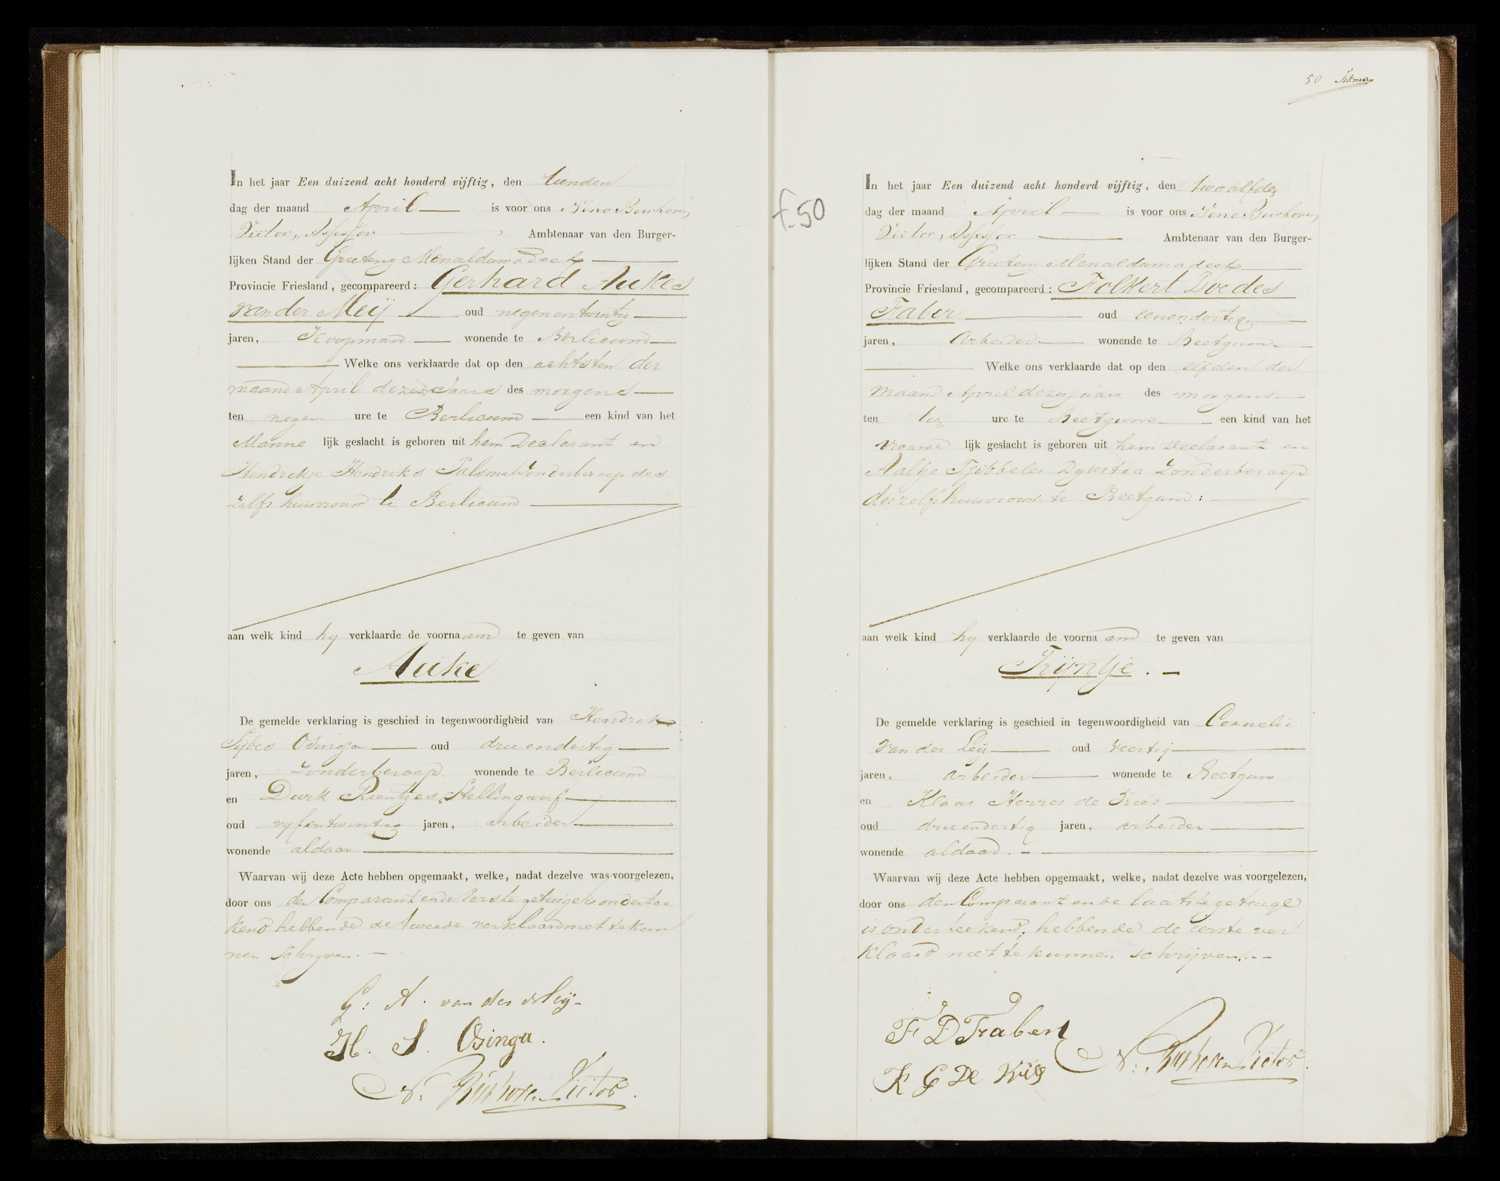 In het jaar Een duizend acht honderd vijftig, den tienden
dag der maand April is voor ons
Victor, Assessor Ambtenaar van den Burger-
lijken Stand der Grietenij Menaldumadeel
Provincie Friesland, gecompareerd: Gerhard Aukes
van der Meij oud negenentwintig
jaren, Koopman wonende te Berlicum
Welke ons verklaarde dat op den achtsten der
maand April dezes Jaars des morgens
ten negen ure te Berlicum een kind van het
Manne lijk geslacht is geboren uit hem Declarant en
Hendrikje Hendriks zonder beroep des
zelfs huisvrouw te Berlicum
aan welk kind hy verklaarde de voorna am te geven van
Auke
De gemelde verklaring is geschied in tegenwoordigheid van Hendrik
Sybes Osinga oud drieendertig
jaren, zonder beroep wonende te Berlicum
en Durk Rientjes Stellingwerf
oud vyfentwintig jaren, arbeider
wonende aldaar
Waarvan wij deze Acte hebben opgemaakt, welke, nadat dezelve was voorgelezen,
door ons den Comparant en de eerste getuige is ondertee
kend hebbende de tweede verklaard niet te kun
nen schryven.
G: A. van der Meij
H. S. Osinga.
N: Buthove Victor.
f. 50
50
In het jaar Een duizend acht honderd vijftig, den twaalfden
dag der maand April is voor ons
Victor, Assessor Ambtenaar van den Burger-
lijken Stand der Grietenij Menaldumadeel
Provincie Friesland, gecompareerd: Folkert Doedes
Faber oud eenendertig
jaren, Arbeider wonende te Beetgum
Welke ons verklaarde dat op den elfden der
maand April dezes jaars des morgens
ten tien ure te Beetgum een kind van het
Vrouwe lijk geslacht is geboren uit hem declarant en
Aaltje Tjibbeles Dykstra zonder beroep
deszelfs huisvrouw te Beetgum:
aan welk kind hy verklaarde de voorna am te geven van
Trijntje.
De gemelde verklaring is geschied in tegenwoordigheid van Cornelis
Van der Leij oud veertig
jaren, arbeider wonende te Beetgum
en Klaas de Vries
oud drieendertig jaren, arbeider
wonende aldaar.
Waarvan wij deze Acte hebben opgemaakt, welke, nadat dezelve was voorgelezen,
door ons den Comparant en de laatste getuige
is onderteekend, hebbende de eerste ver
klaard niet te kunnen schrijven.
F D Faber
K G De Vries
N: Buthove Victor.